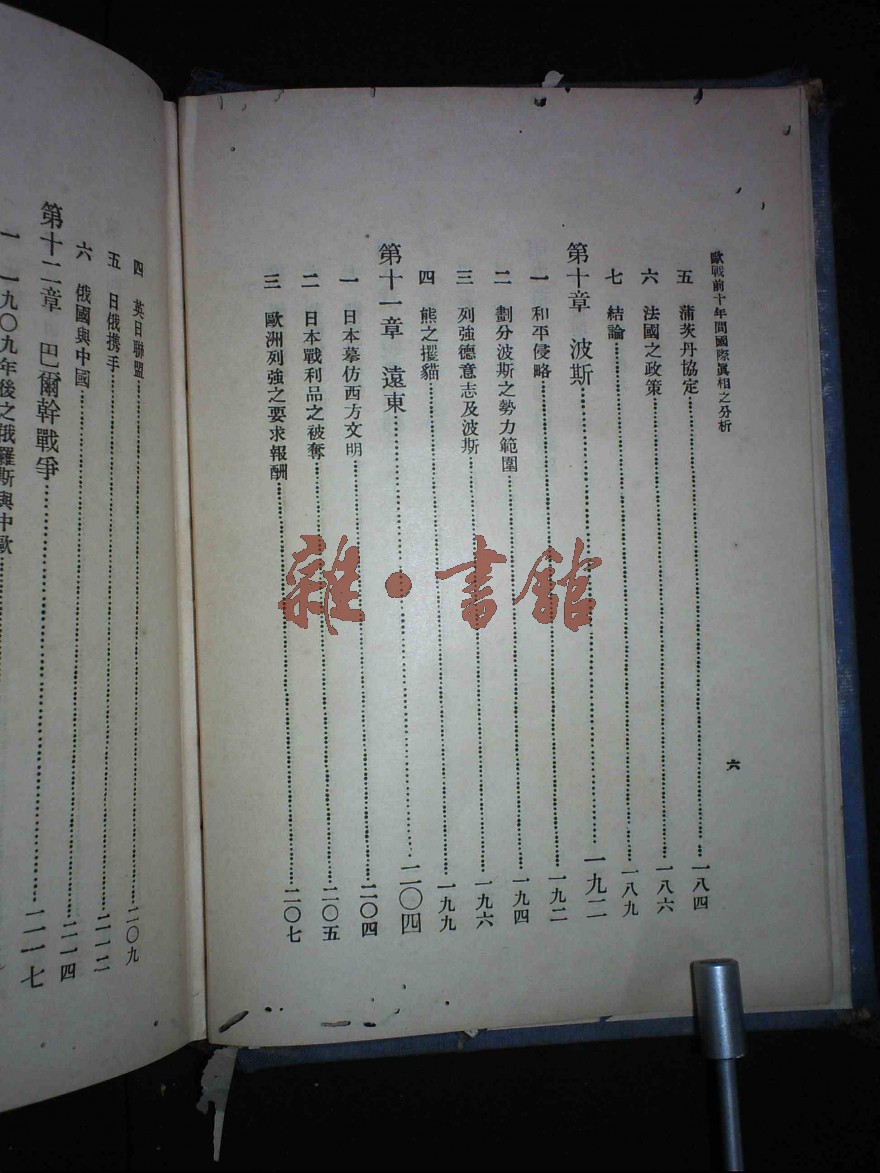 歐戰前十年間國際眞相之分析
六
五 蒲茨丹協定……一八四
六 法國之政策……一八六
七 結論……一八九
第十章 波斯……一九二
一 和平侵略……一九二
二 劃分波斯之勢力範圍……一九四
三 列強德意志及波斯……一九六
四 熊之攫貓……一九九
第十一章 遠東……二〇四
一 日本摹仿西方文明……二〇四
二 日本戰利品之被奪……二〇五
三 歐洲列強之要求報酬……二〇七
四 英日聯盟……二〇九
五 日俄携手……二一二
六 俄國與中國……二一四
第十二章 巴爾幹戰爭……二一七
一 一九〇九年後之俄羅斯與中歐
雜·書舘